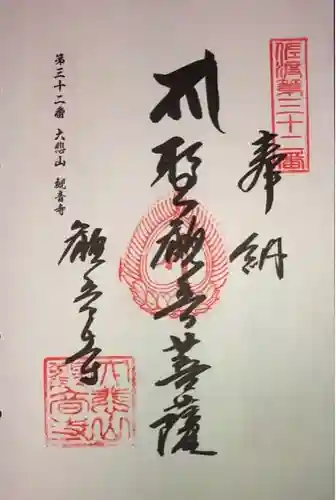 佐渡第三十二番
奉納
聖観音菩薩
観音寺
第三十二番 大悲山 観音寺
大悲山
観音寺